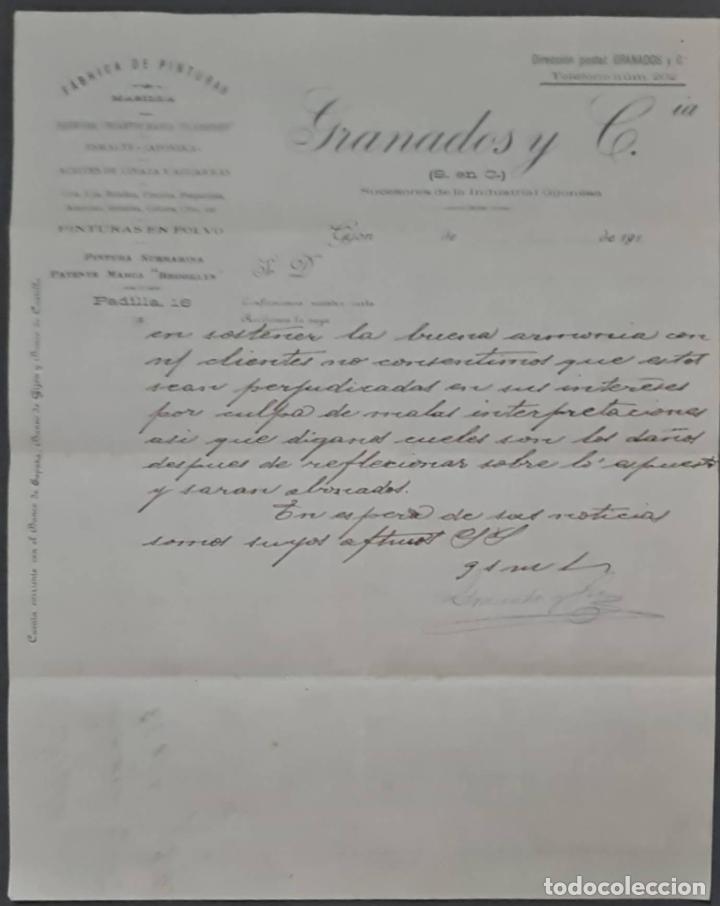 FÁBRICA DE PINTURAS
MASILLA
ESMALTE "JAPONIKA"
ACEITES DE LINAZA Y AGUARRÁS
PINTURAS EN POLVO
PINTURA SUBMARINA
PATENTE MARCA "BROOKLYN"
Padilla, 16
Dirección postal: GRANADOS y C.ª
Teléfono núm. 202
Granados y C.ia
(S. en C.)
Sucesores de la Industrial Gijonesa
Gijón de de 191
S. D.
Confirmamos nuestra carta
Recibimos la suya
Cuenta corriente con el Banco de España, Banco de Gijón y Banco de Castilla
en sostener la buena armonia con
n/ clientes no consentimos que estos
sean perjudicados en sus intereses
por culpa de malas interpretaciones
asi que diganos cueles son los daños
despues de reflecionar sobre lo espuesto
y saran abonados.
En espera de sus noticias
somos suyos aftmos SS
q s m b
todocoleccion.net